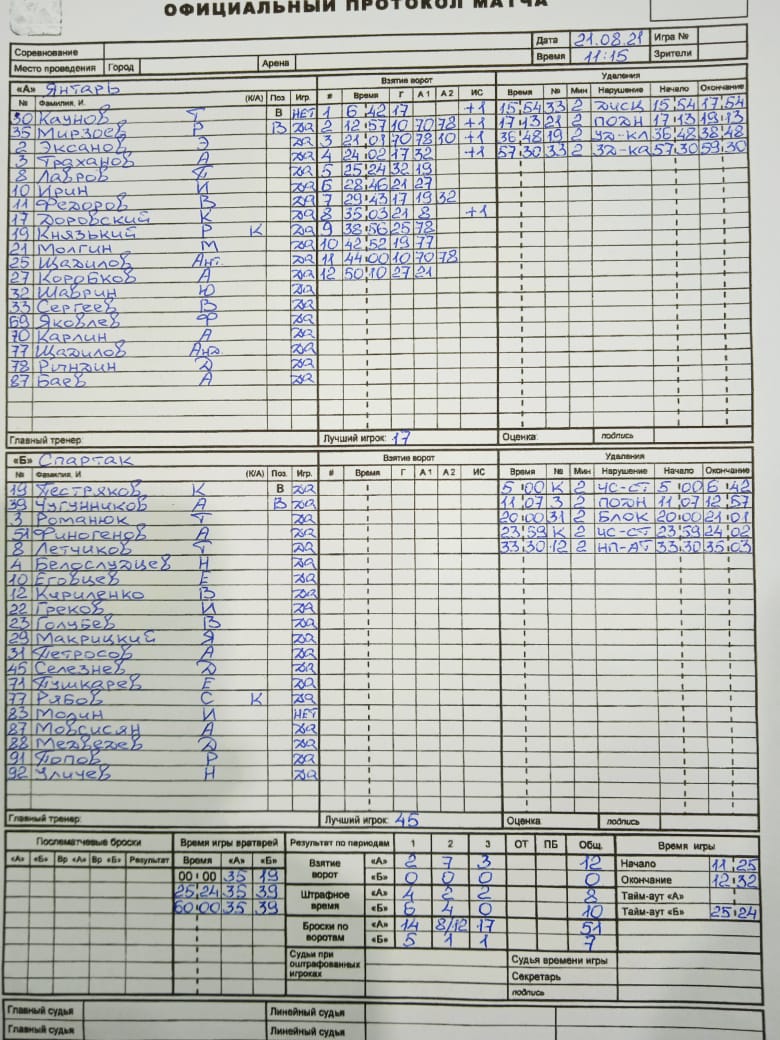 ОФИЦИАЛЬНЫЙ ПРОТОКОЛ МАТЧА
Соревнование Дата 21.08.21 Игра №
Место проведения Город Арена Время 11:15 Зрители
«А» Янтарь Взятие ворот Удаления
№ Фамилия, И. (К/А) Поз Игр. # Время Г А1 А2 ИС Время № Мин Нарушение Начало Окончание
30 Каунов Т В НЕТ 1 6 42 17 +1 15 54 33 2 ДИСК 15 54 17 54
35 Мирзоев Р В ДА 2 12 57 10 70 78 +1 17 13 21 2 ПОДН 17 13 19 13
2 Эксанов Э ДА 3 21 01 70 78 10 +1 36 48 19 2 УД-КЛ 36 48 38 48
3 Траханов А ДА 4 24 02 17 32 +1 57 30 33 2 ЗД-КА 57 30 59 30
8 Лавров П ДА 5 25 24 32 19
10 Ирин И ДА 6 28 46 21 27
11 Федоров В ДА 7 29 43 17 19 32
17 Доровский К ДА 8 35 03 21 8 +1
19 Князький Р К ДА 9 38 56 25 78
21 Молгин М ДА 10 42 52 19 77
25 Щадилов Ант. ДА 11 44 00 10 70 78
27 Коробков А ДА 12 50 10 27 21
32 Шаврин Ю ДА
33 Сергеев В ДА
69 Яковлев Ф ДА
70 Карлин А ДА
77 Щадилов Анд. ДА
78 Риндин Д ДА
87 Баев А ДА
Главный тренер Лучший игрок: 17 Оценка: подпись
«Б» Спартак Взятие ворот Удаления
№ Фамилия, И. (К/А) Поз. Игр. # Время Г А1 А2 ИС Время № Мин Нарушение Начало Окончание
19 Пестряков К В ДА 5 00 К 2 ЧС-СТ 5 00 6 42
39 Чугунников А В ДА 11 07 3 2 ПОДН 11 07 12 57
3 Романюк Т ДА 20 00 31 2 БЛОК 20 00 21 01
51 Финогенов А ДА 23 59 К 2 ЧС-СТ 23 59 24 02
8 Летчиков Т ДА 33 30 12 2 НП-АТ 33 30 35 03
4 Белослудцев Н ДА
10 Еговцев Е ДА
12 Кириленко В ДА
22 Греков И ДА
23 Голубев В ДА
29 Макрицкий Я ДА
31 Петросов А ДА
45 Селезнев Д ДА
71 Пушкарев Е ДА
77 Рябов С К ДА
83 Модин И НЕТ
87 Мовсисян А ДА
88 Медведев Д ДА
91 Попов Р ДА
92 Уличев Н ДА
Главный тренер: Лучший игрок: 45 Оценка подпись
Послематчевые броски Время игры вратарей Результат по периодам 1 2 3 ОТ ПБ Общ. Время игры
«А» «Б» Вр «А» Вр «Б» Результат Время «А» «Б» Взятие ворот «А» 2 7 3 12 Начало 11 25
00 00 35 19 «Б» 0 0 0 0 Окончание 12 32
25 24 35 39 Штрафное время «А» 4 2 2 8 Тайм-аут «А»
60 00 35 39 «Б» 6 4 0 10 Тайм-аут «Б» 25 24
Броски по воротам «А» 14 8/12 17 51
«Б» 5 1 1 7
Судьи при оштрафованных игроках Судья времени игры
Секретарь
подпись
Главный судья Линейный судья
Главный судья Линейный судья